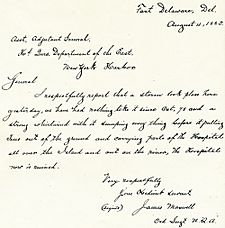 Fort Delaware, Del.
August 4, 1885.
Asst. Adjutant General.
Hd. Qrs. Department of the East.
New York Harbor
General
I respectfully report that a storm took place here
yesterday, we have had nothing like it since Oct. 78 and a
strong whirlwind with it sweeping every thing before it pulling
trees out of the ground and carrying parts of the Hospital
all over the Island and out on the river, the Hospital
now is ruined.
Very respectfully
Your Obedient Servant
(Signed) James Maxwell
Ord Sergt. U.S.A.